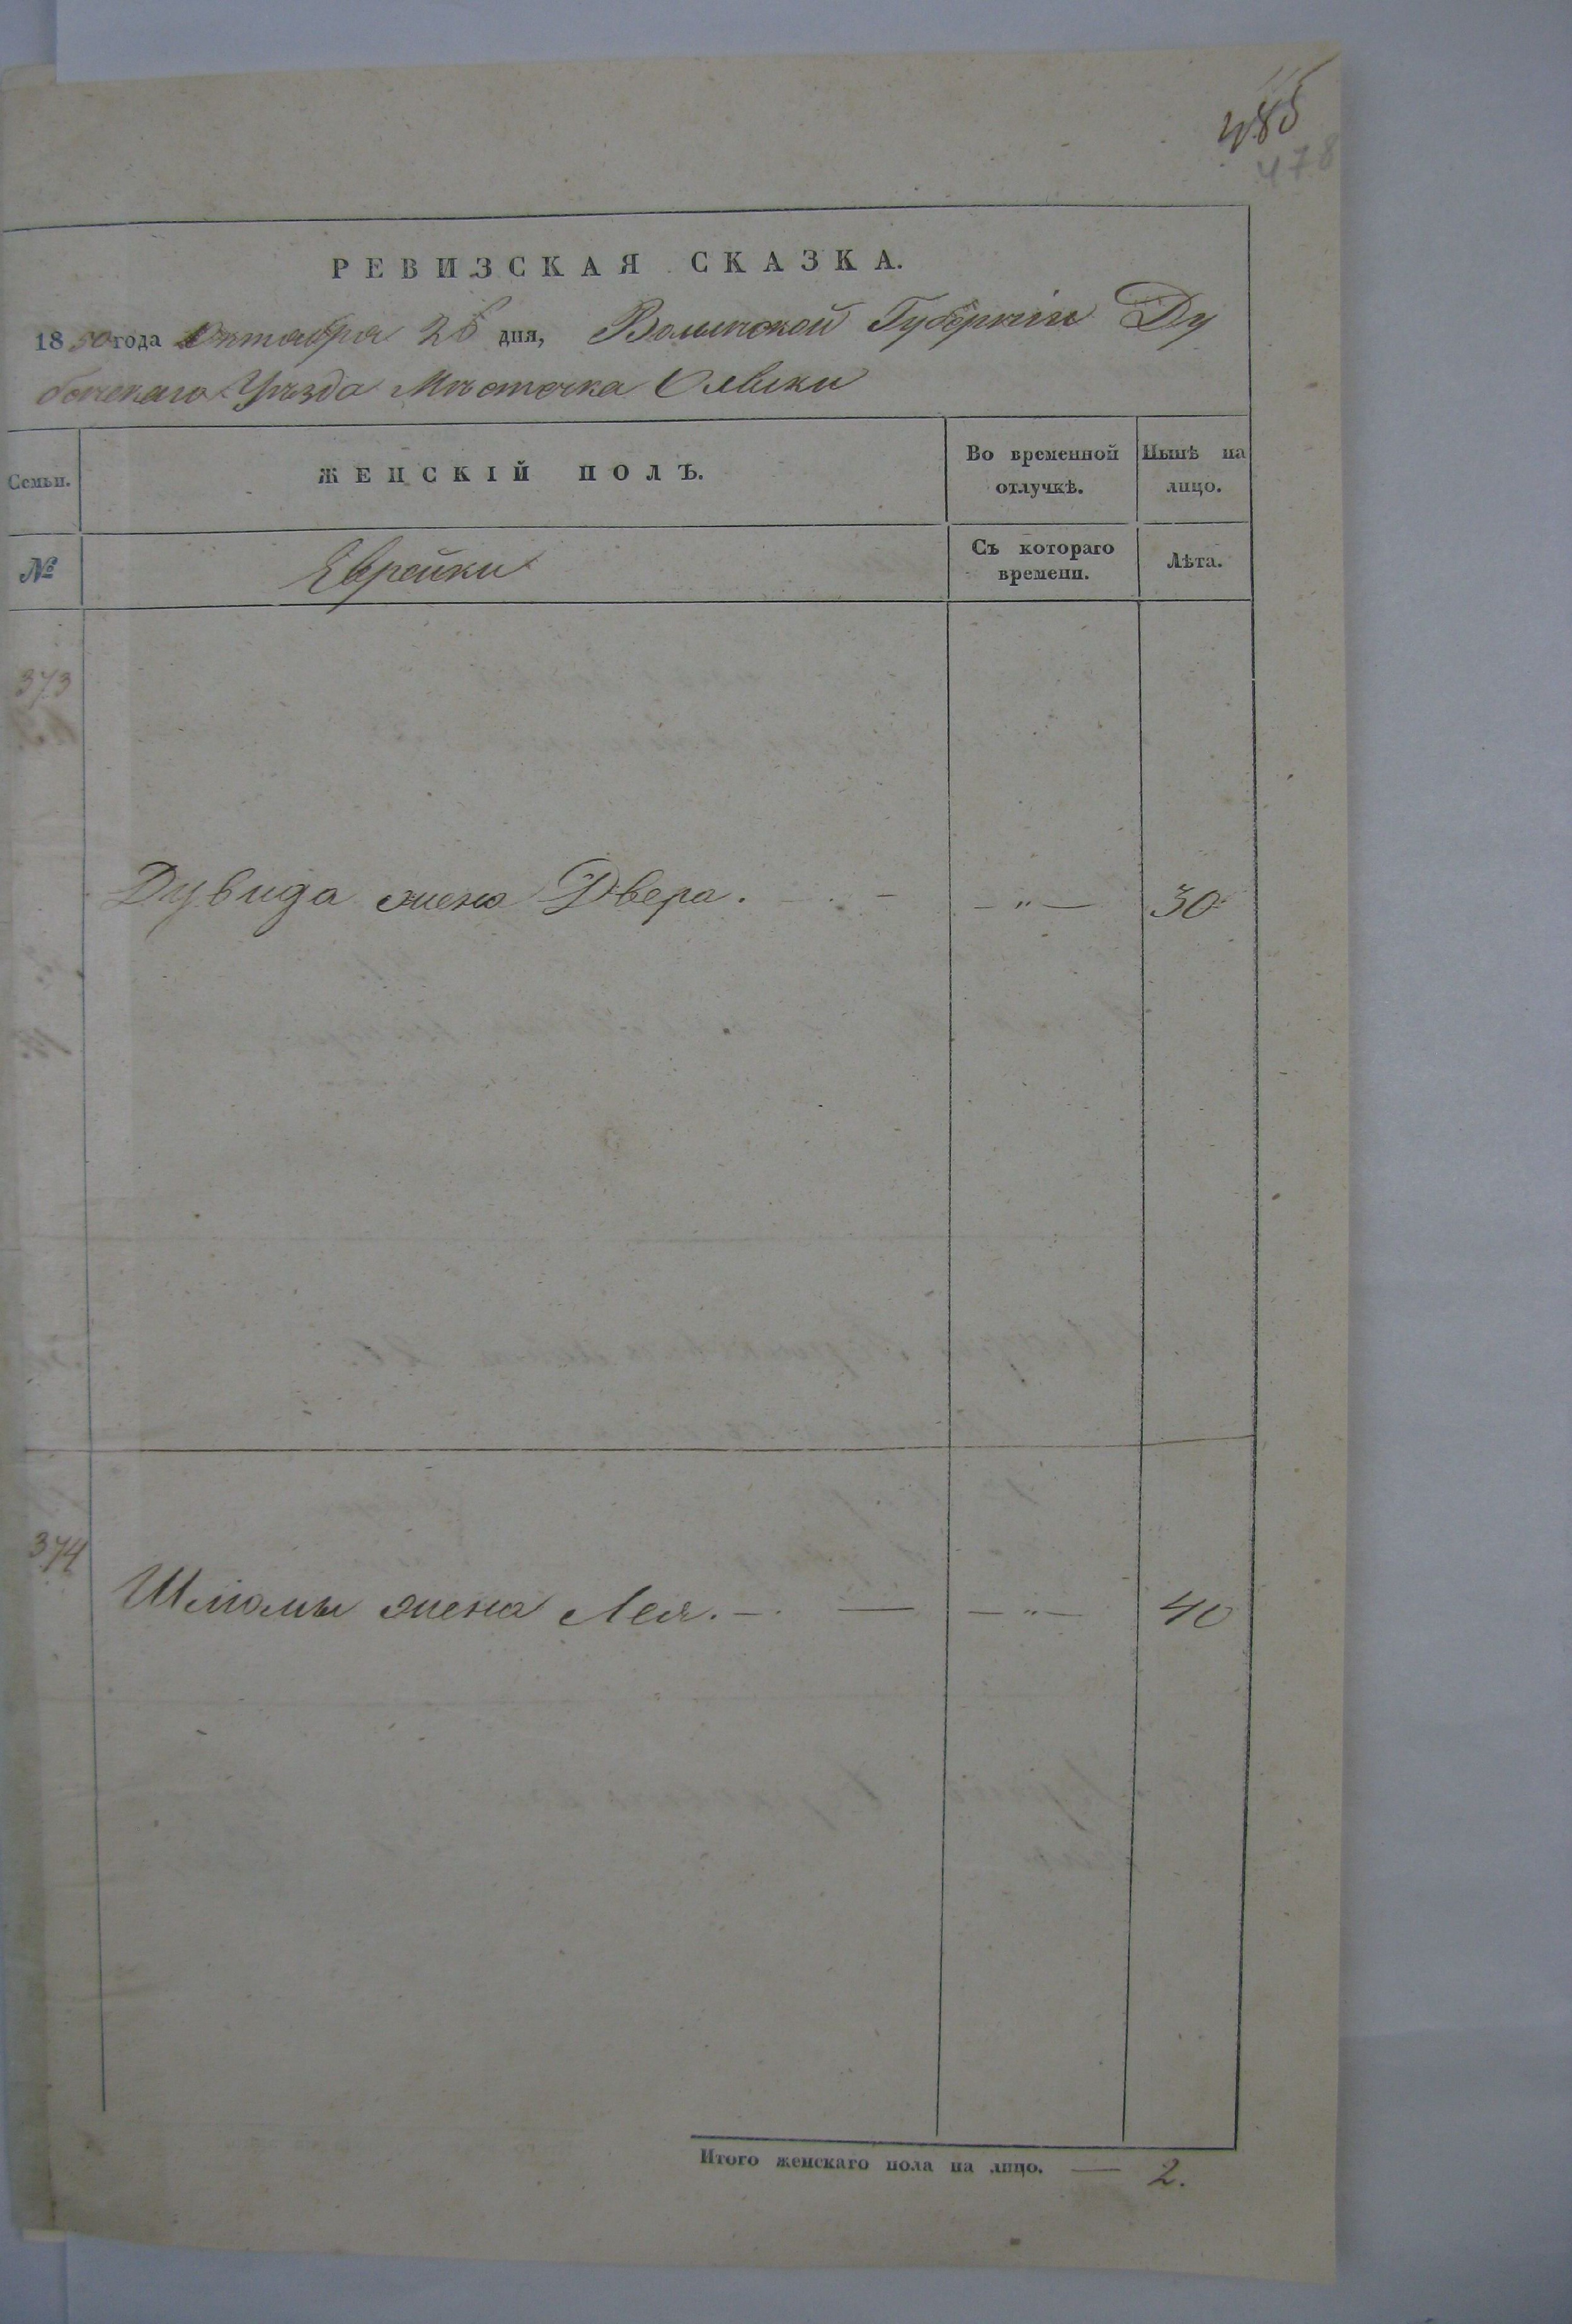 485
478
РЕВИЗСКАЯ СКАЗКА.
1850 года Октября 26 дня, Волынской Губерніи Ду
бенскаго Уѣзда Мѣстечка Олыки
Семьи. ЖЕНСКІЙ ПОЛЪ. Во временной отлучкѣ. Нынѣ на лицо.
№ Еврейки Съ котораго времени. Лѣта.
373
Дувида жена Двера. - — " — 30
374
Шліомы жена Лея. — — — " — 40
Итого женскаго пола на лицо. — 2.